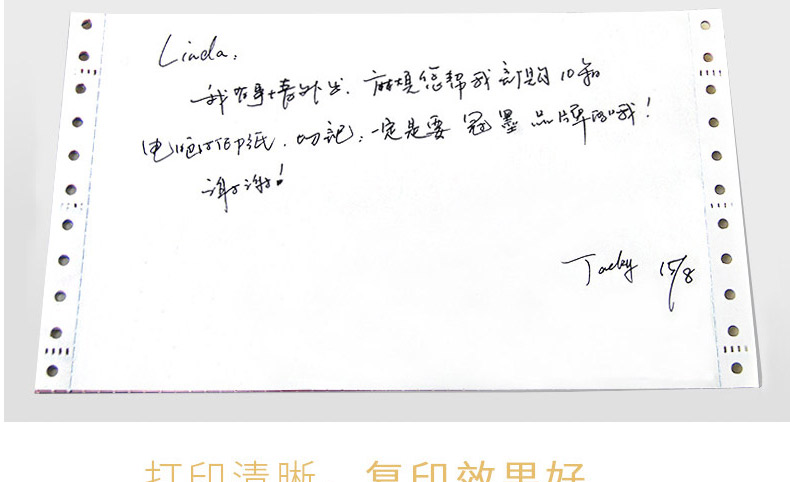 Linda:
我有事情外出,麻烦您帮我订购10箱
电脑打印纸,切记,一定是要冠墨品牌的哦!
谢谢!
Jacky 15/8
打印清晰 复印效果好